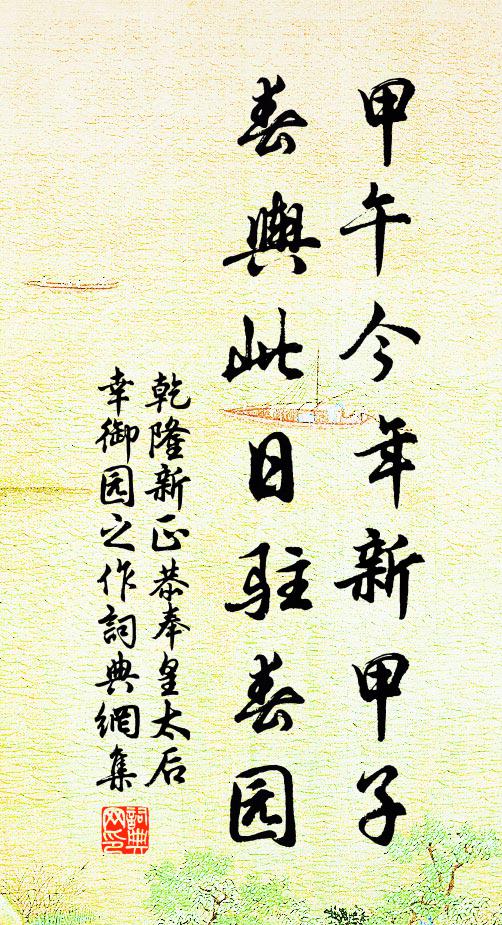 甲午今年新甲子
春輿此日驻春园
乾隆新正恭奉皇太后
幸御园之作詞典網集
詞典
网印